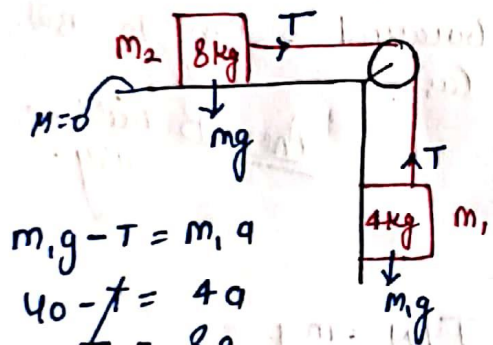 T
m₂ 8kg
μ=0
mg
T
4kg m₁
m₁g
m₁g - T = m₁ a
40 - T = 4a
T = 8a